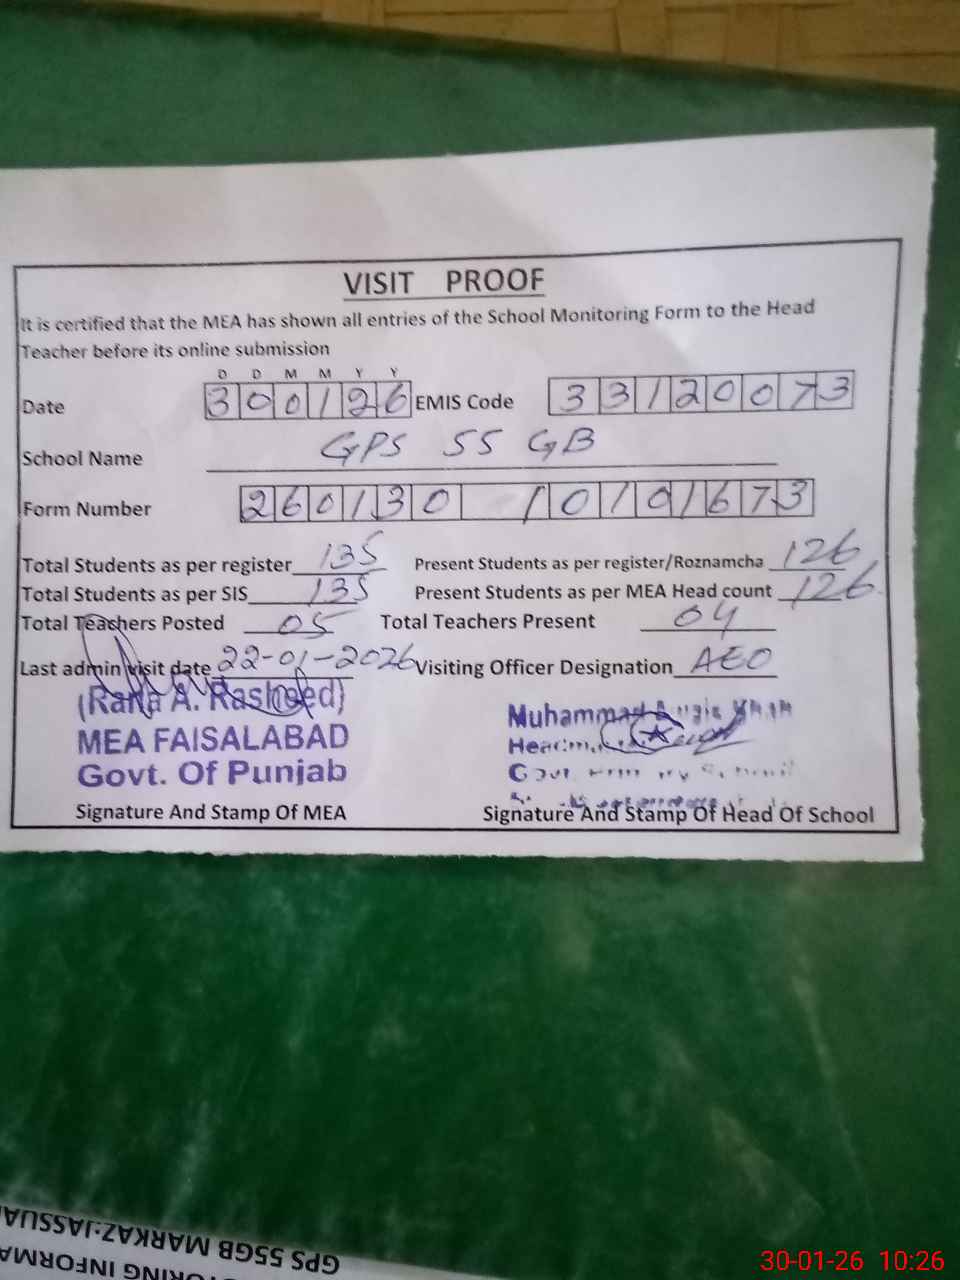 VISIT PROOF
It is certified that the MEA has shown all entries of the School Monitoring Form to the Head
Teacher before its online submission
D D M M Y Y
Date 300126 EMIS Code 33120073
School Name GPS 55 GB
Form Number 260130 10101673
Total Students as per register 135 Present Students as per register/Roznamcha 126
Total Students as per SIS 135 Present Students as per MEA Head count 126
Total Teachers Posted 05 Total Teachers Present 04
Last admin visit date 22-01-2026 Visiting Officer Designation AEO
(Rana A. Rasheed)
MEA FAISALABAD
Govt. Of Punjab
Muhammad
Signature And Stamp Of MEA Signature And Stamp Of Head Of School
GPS 55GB MARKAZ:JASSUA
30-01-26 10:26